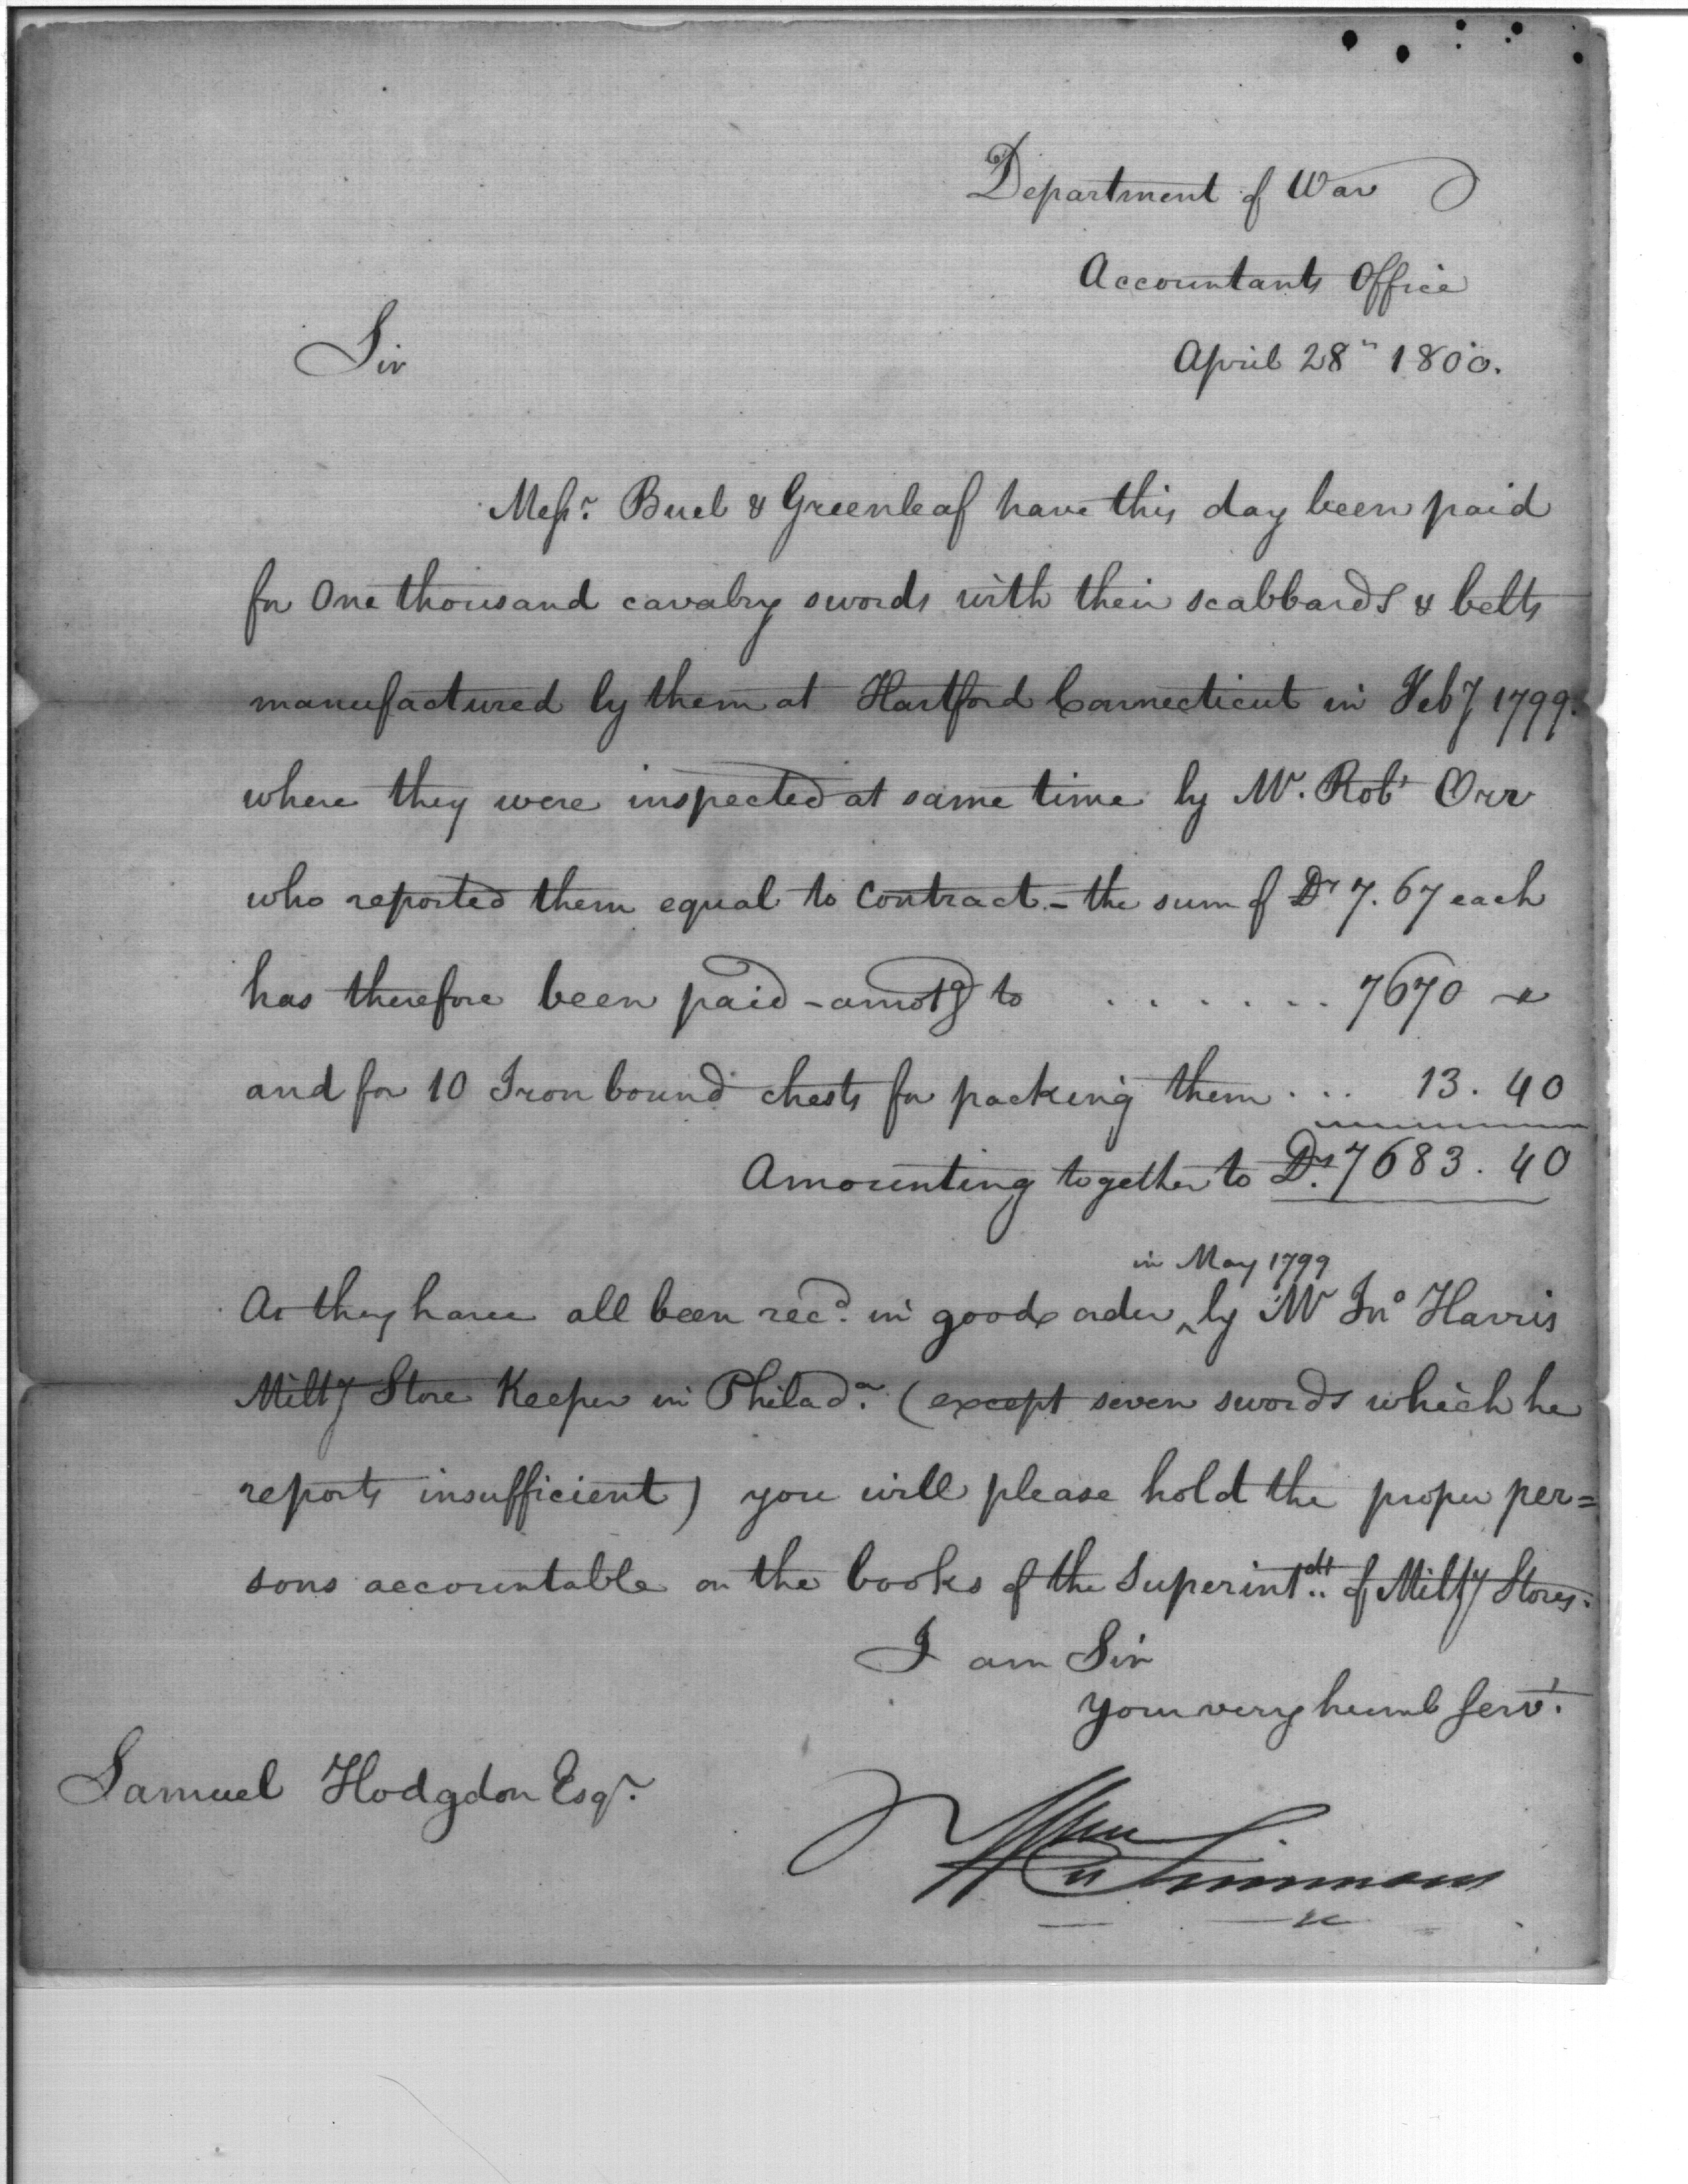 Department of War
Accountants Office
April 28th 1800.
Sir
Messr. Buel & Greenleaf have this day been paid
for One thousand cavalry swords with their scabbards & belts
manufactured by them at Hartford Connecticut in Feby 1799.
where they were inspected at same time by Mr. Robt Orr
who reported them equal to Contract - the sum of Drs 7.67 each
has therefore been paid - amotg to . . . . . . 7670 -
and for 10 Iron bound chests for packing them . . . 13.40
Amounting together to Drs. 7683.40
in May 1799
As they have all been recd. in good order ^ by Mr Jno Harris
Milty Store Keeper in Philada. (except seven swords which he
reports insufficient) you will please hold the proper per=
sons accountable on the books of the Superintdt. of Milty Stores.
I am Sir
your very humb Servt.
Samuel Hodgdon Esqr.
Wm Simmons